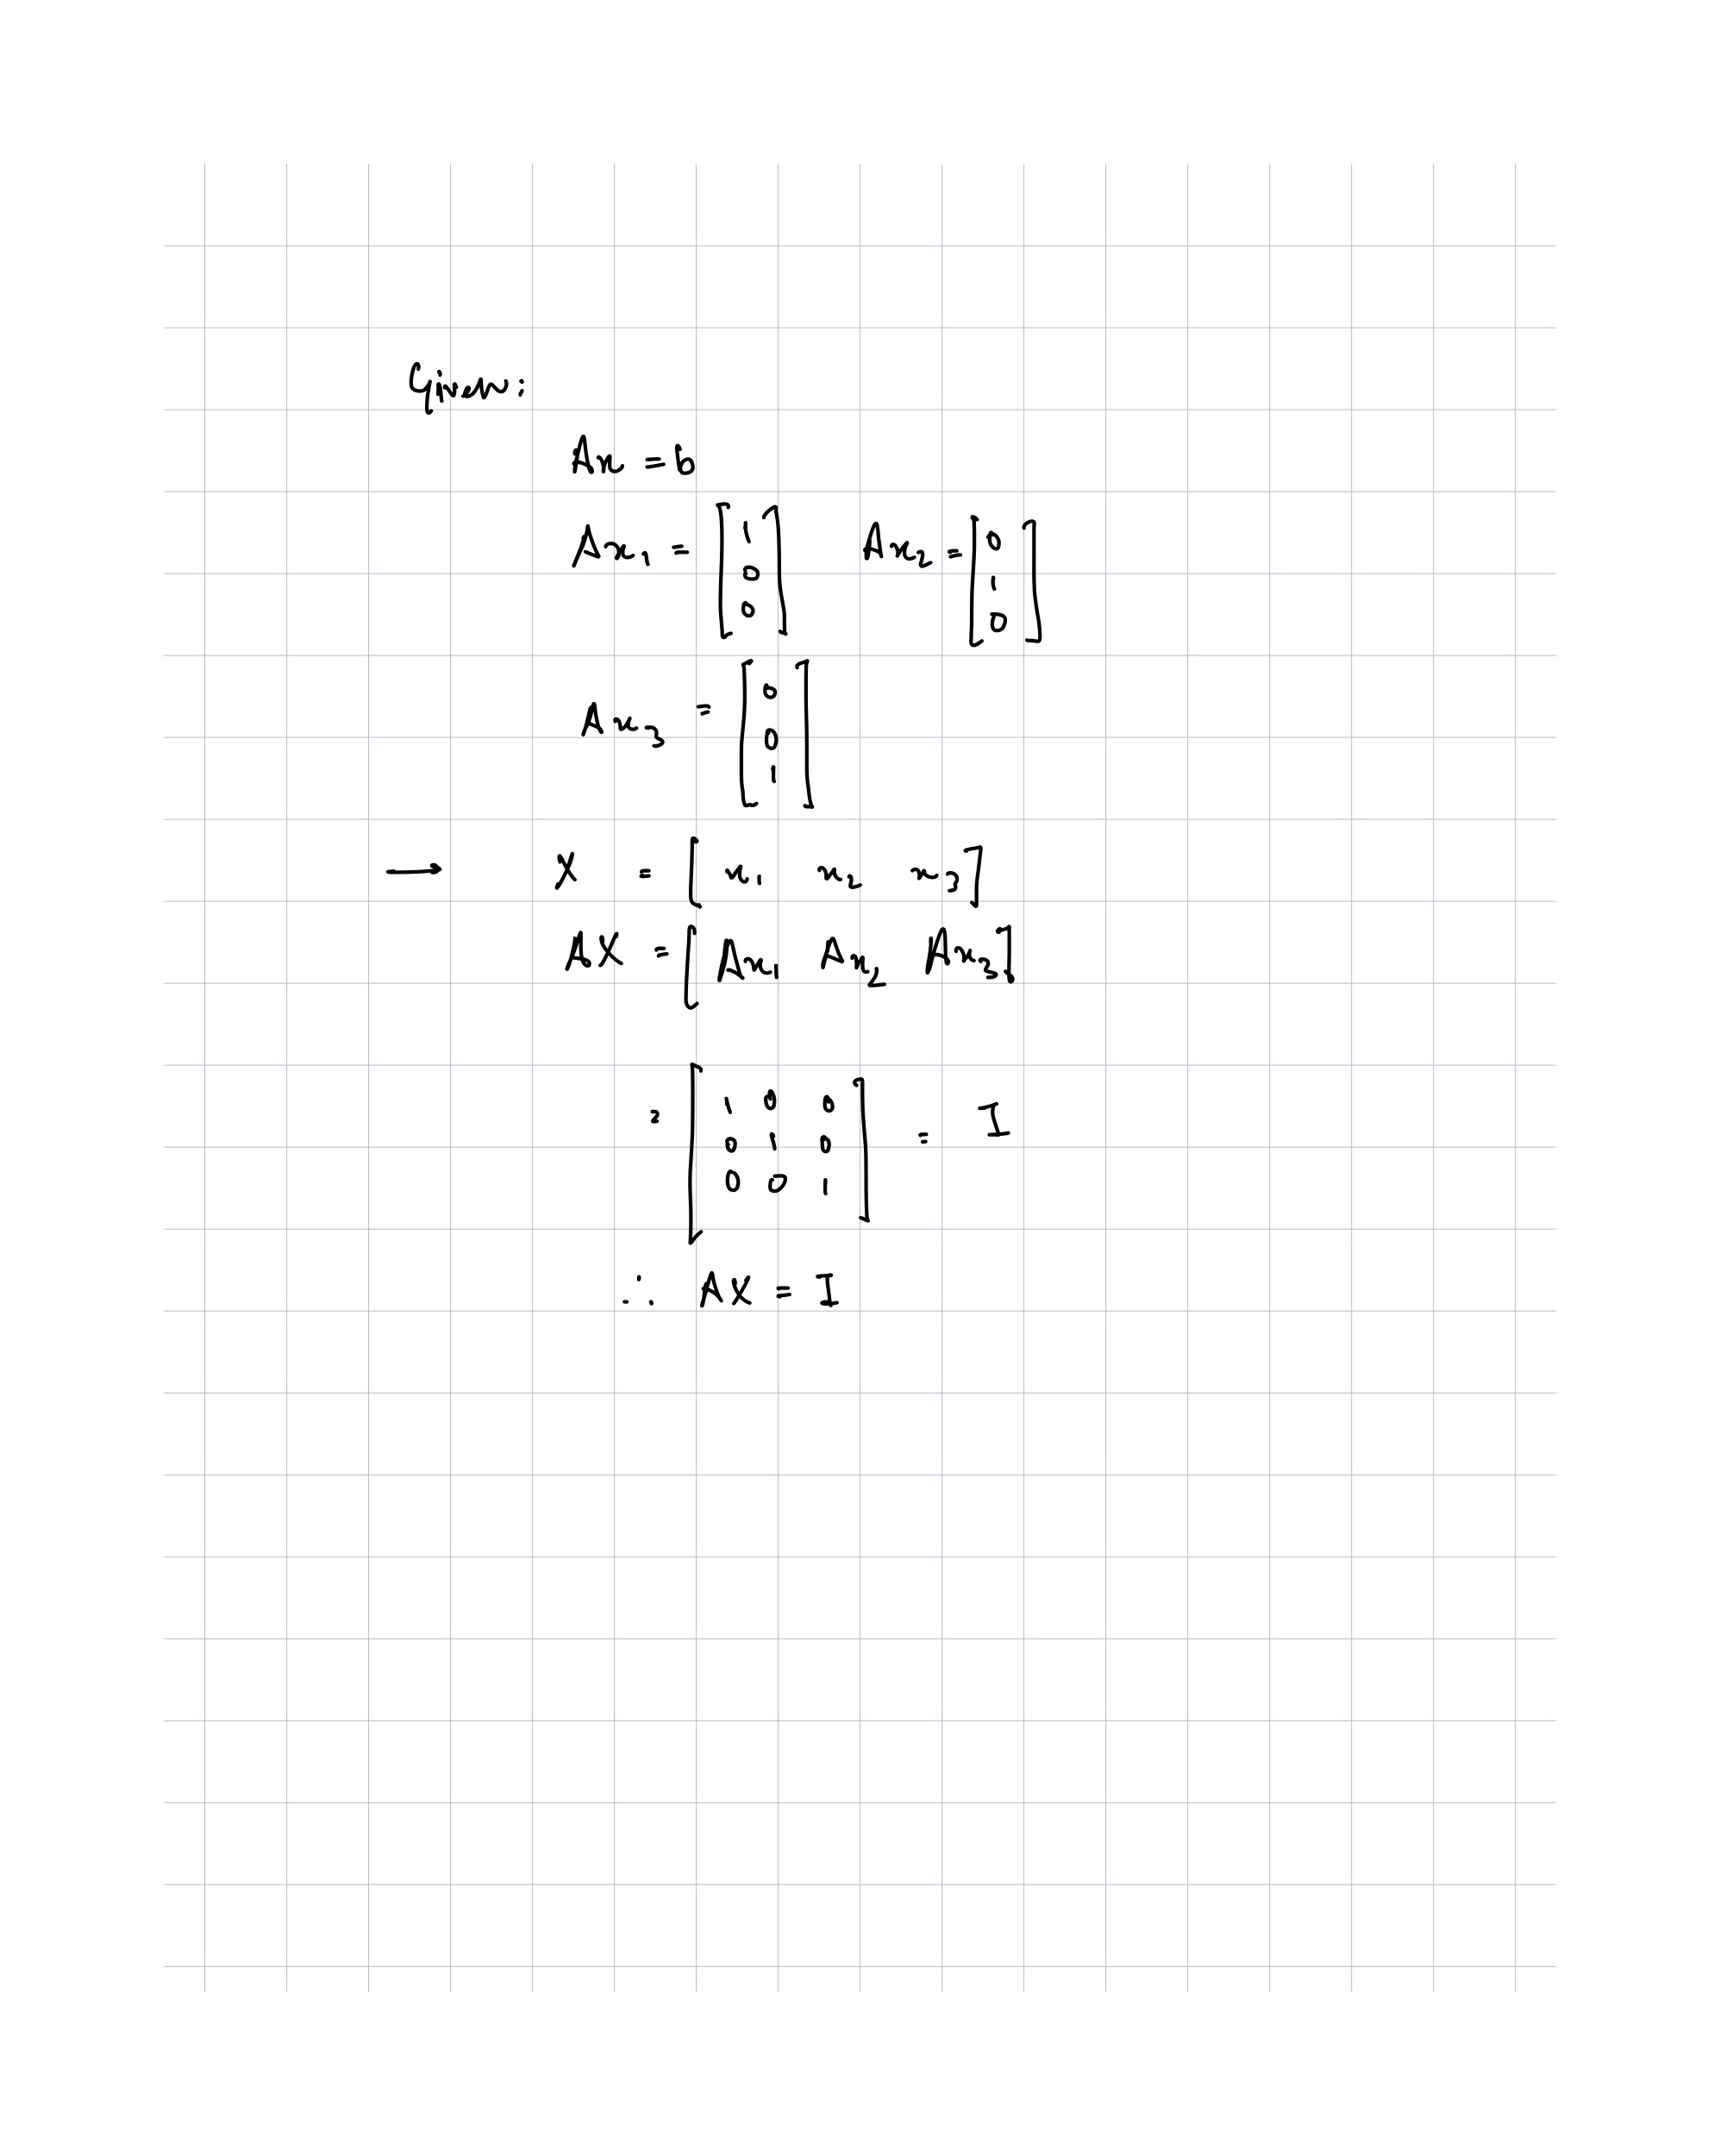 Given:
Ax = b
Ax₁ = [1 0 0] Ax₂ = [0 1 0]
Ax₃ = [0 0 1]
→ X = [x₁ x₂ x₃]
AX = [Ax₁ Ax₂ Ax₃]
= [1 0 0
0 1 0
0 0 1] = I
∴ AX = I